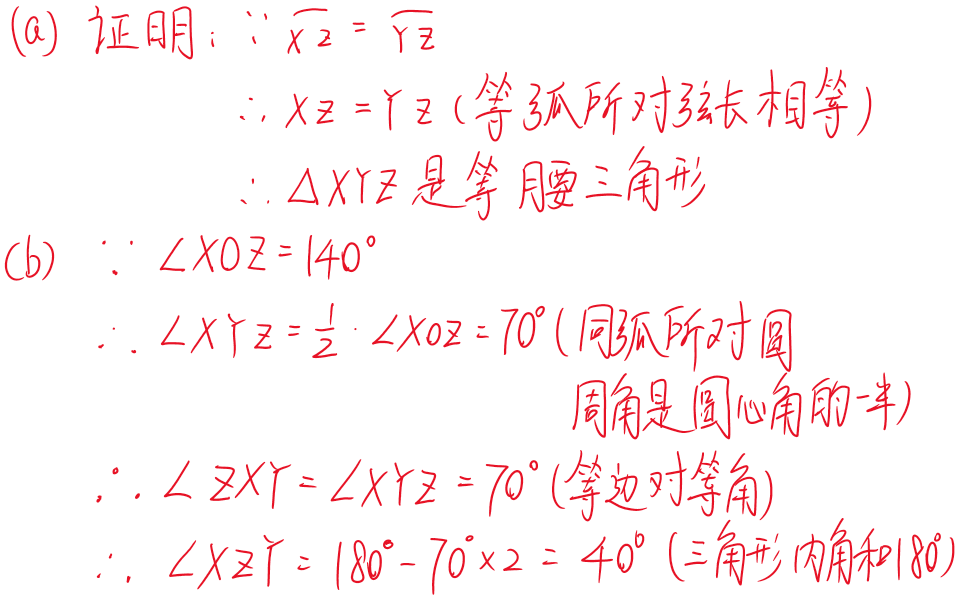 (a) 证明: ∵ X̅Z̅ = Y̅Z̅
∴ XZ = YZ (等弧所对弦长相等)
∴ △XYZ 是等腰三角形
(b) ∵ ∠XOZ = 140°
∴ ∠XYZ = 1/2 · ∠XOZ = 70° (同弧所对圆
周角是圆心角的一半)
∴ ∠ZXY = ∠XYZ = 70° (等边对等角)
∴ ∠XZY = 180° - 70° × 2 = 40° (三角形内角和180°)